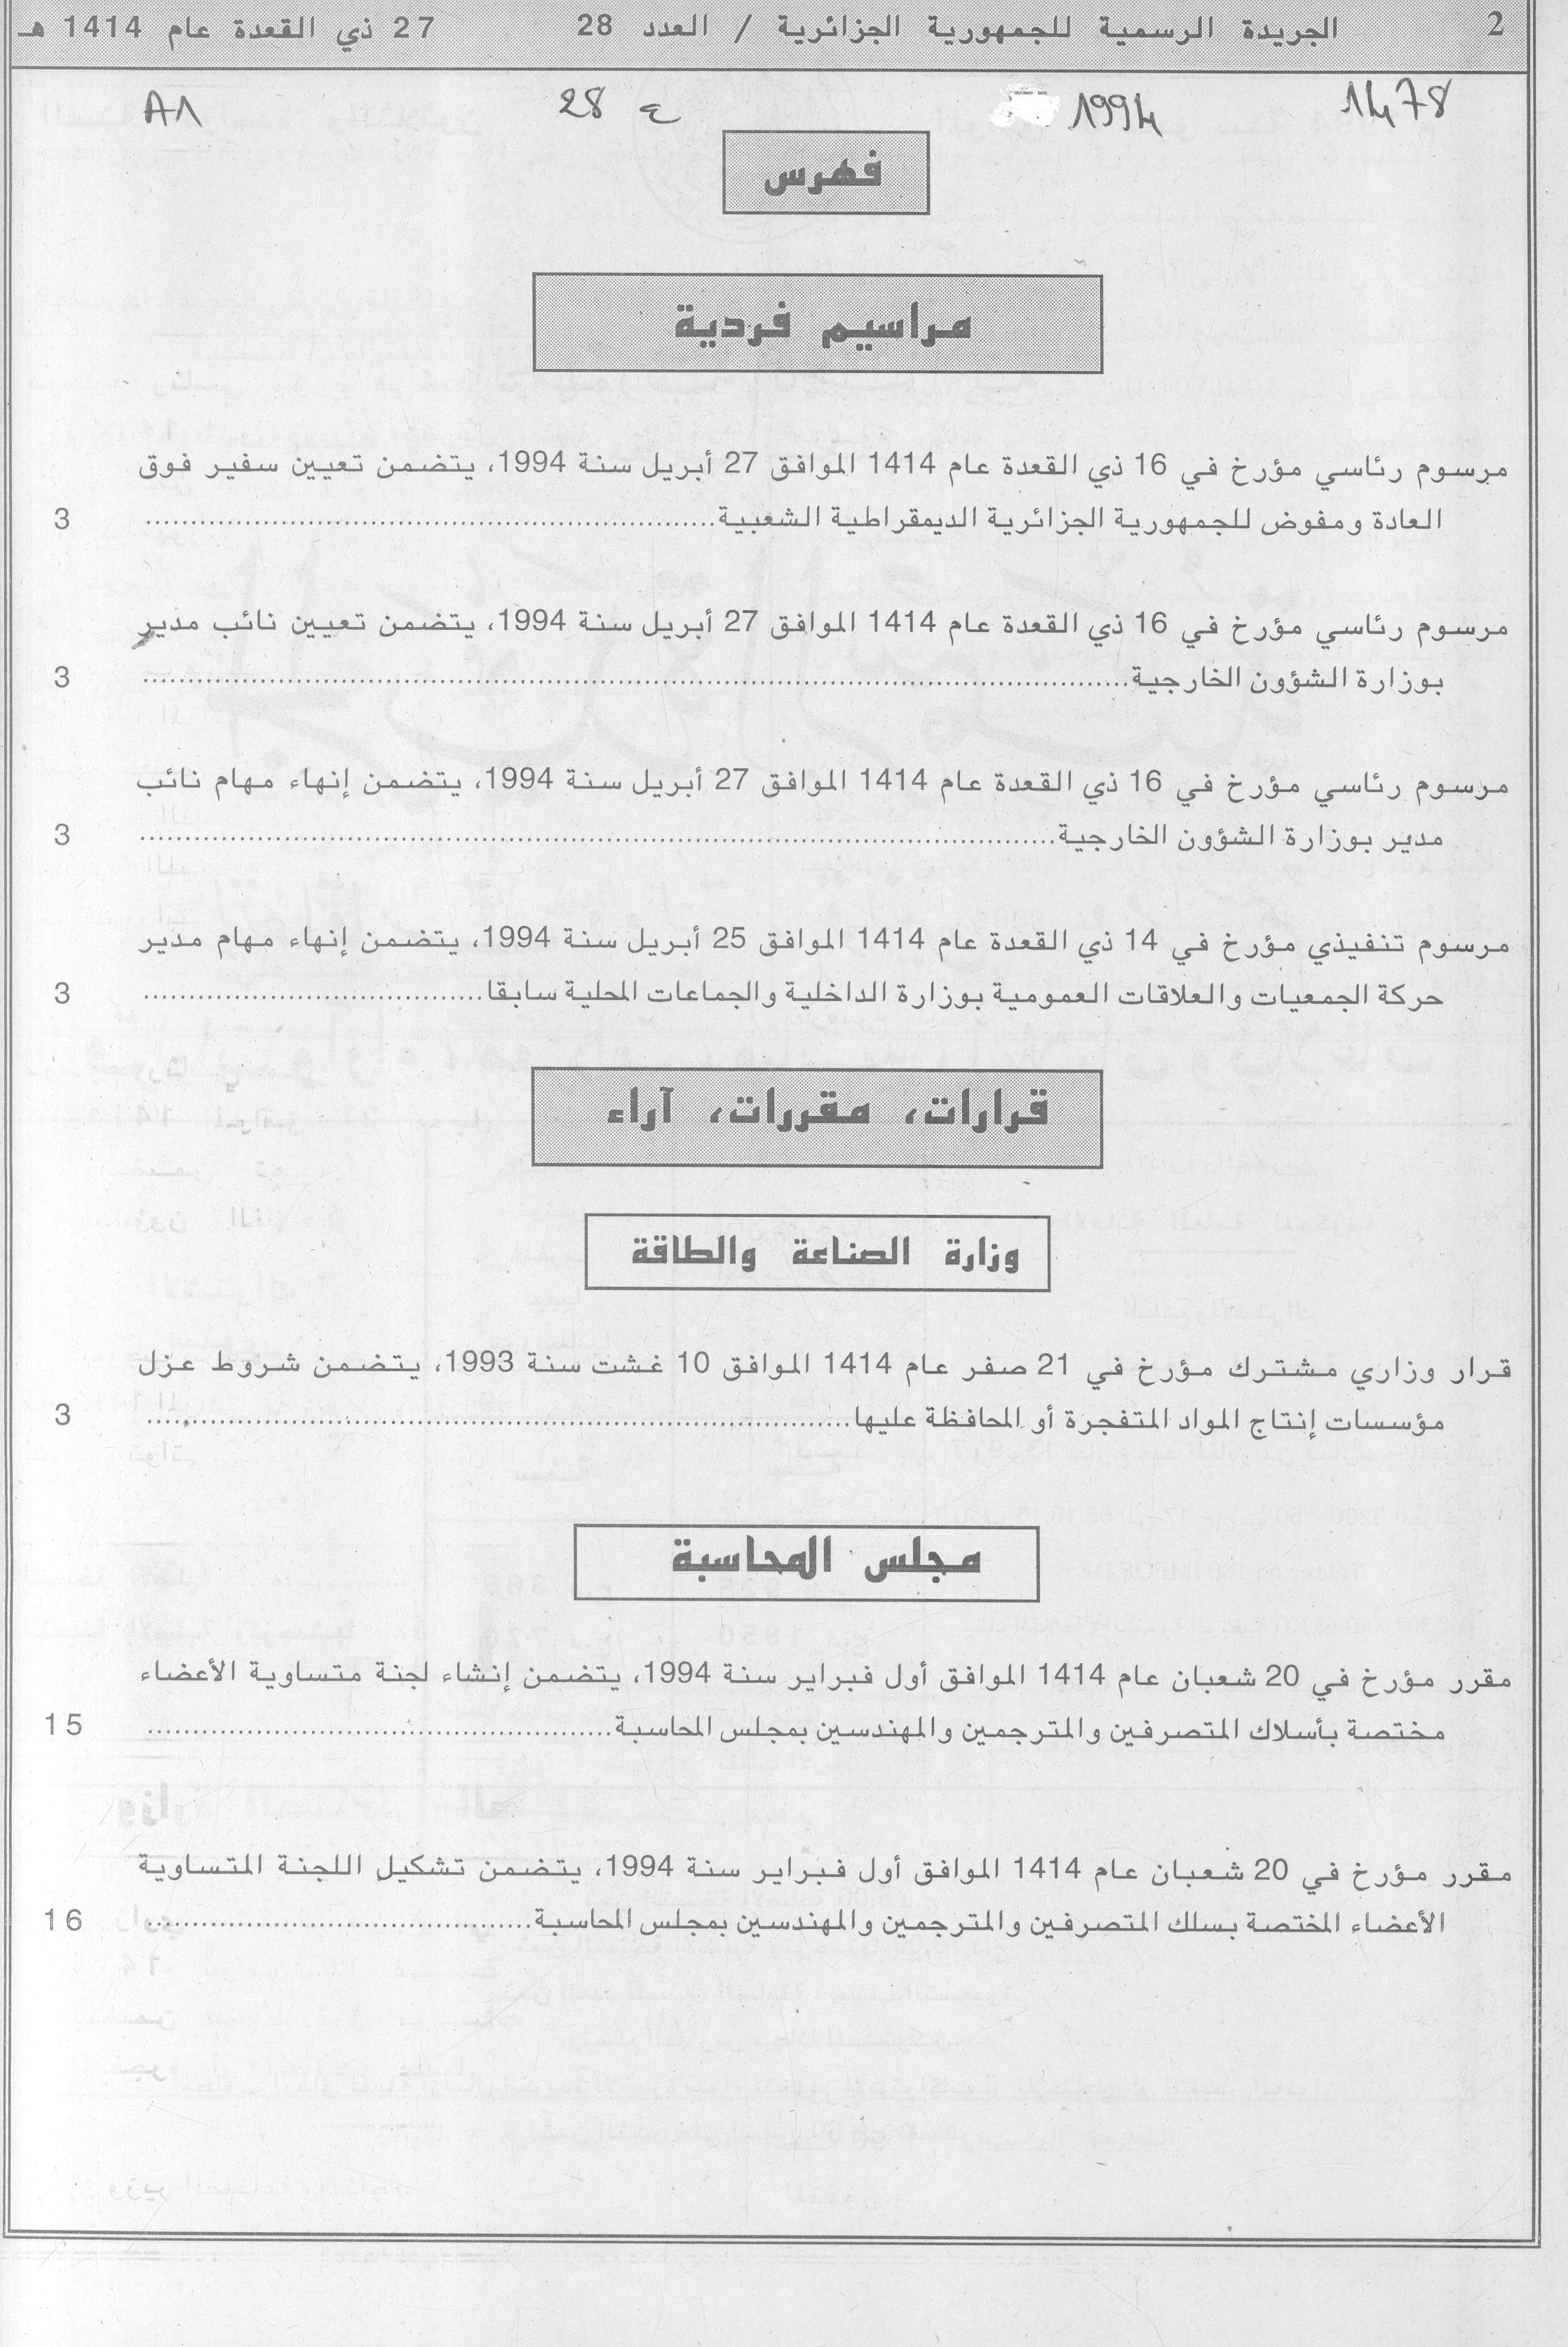 2 الجريدة الرسمية للجمهورية الجزائرية / العدد 28 27 ذي القعدة عام 1414 هـ
1478 1994 ع 28 A1
فهرس
مراسيم فردية
مرسوم رئاسي مؤرخ في 16 ذي القعدة عام 1414 الموافق 27 أبريل سنة 1994، يتضمن تعيين سفير فوق
العادة ومفوض للجمهورية الجزائرية الديمقراطية الشعبية............................................................... 3
مرسوم رئاسي مؤرخ في 16 ذي القعدة عام 1414 الموافق 27 أبريل سنة 1994، يتضمن تعيين نائب مدير
بوزارة الشؤون الخارجية............................................................................................................. 3
مرسوم رئاسي مؤرخ في 16 ذي القعدة عام 1414 الموافق 27 أبريل سنة 1994، يتضمن إنهاء مهام نائب
مدير بوزارة الشؤون الخارجية..................................................................................................... 3
مرسوم تنفيذي مؤرخ في 14 ذي القعدة عام 1414 الموافق 25 أبريل سنة 1994، يتضمن إنهاء مهام مدير
حركة الجمعيات والعلاقات العمومية بوزارة الداخلية والجماعات المحلية سابقا...................................... 3
قرارات، مقررات، آراء
وزارة الصناعة والطاقة
قرار وزاري مشترك مؤرخ في 21 صفر عام 1414 الموافق 10 غشت سنة 1993، يتضمن شروط عزل
مؤسسات إنتاج المواد المتفجرة أو المحافظة عليها.............................................................................. 3
مجلس المحاسبة
مقرر مؤرخ في 20 شعبان عام 1414 الموافق أول فبراير سنة 1994، يتضمن إنشاء لجنة متساوية الأعضاء
مختصة بأسلاك المتصرفين والمترجمين والمهندسين بمجلس المحاسبة.................................................... 15
مقرر مؤرخ في 20 شعبان عام 1414 الموافق أول فبراير سنة 1994، يتضمن تشكيل اللجنة المتساوية
الأعضاء المختصة بسلك المتصرفين والمترجمين والمهندسين بمجلس المحاسبة........................................... 16